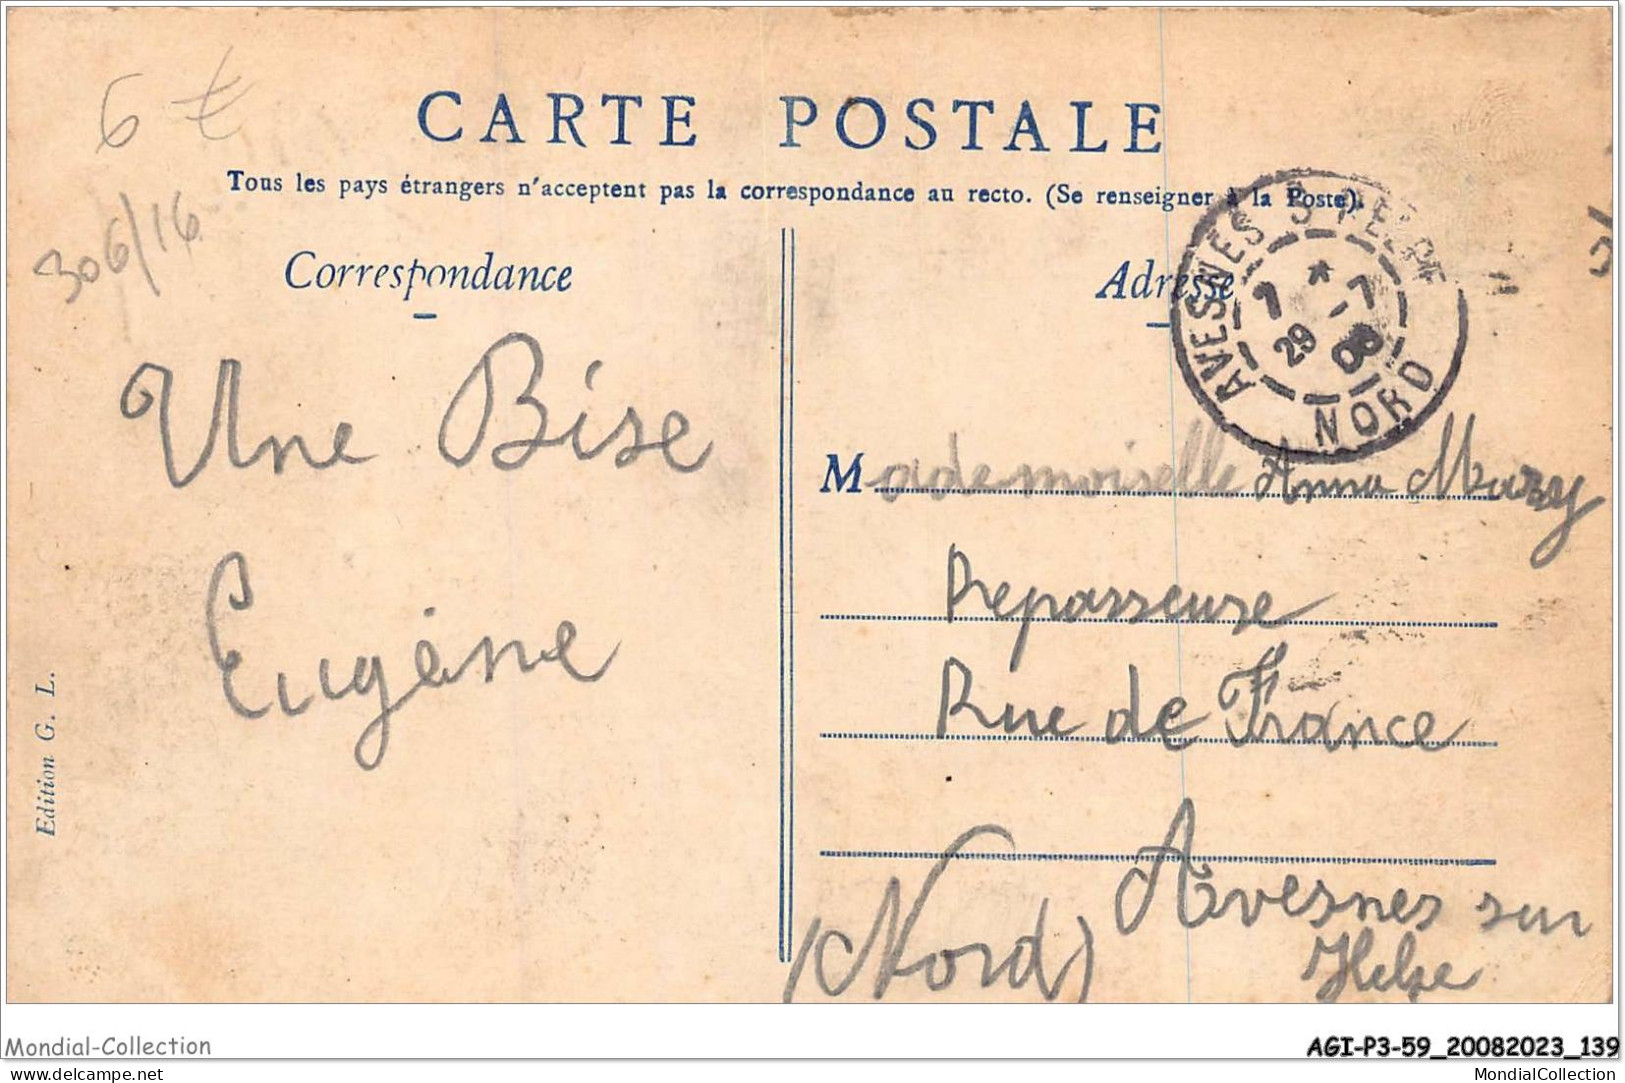 6 €
CARTE POSTALE
Tous les pays étrangers n'acceptent pas la correspondance au recto. (Se renseigner à la Poste).
306/16
Correspondance
Adresse
AVESNES S HELPE
7 * 7
29 - 08
NORD
Une Bise
Eugène
Mademoiselle Anna Mazy
Repasseuse
Rue de France
Avesnes sur
Helpe
(Nord)
Edition G. L.
Mondial-Collection
AGI-P3-59_20082023_139
delcampe.net
MondialCollection